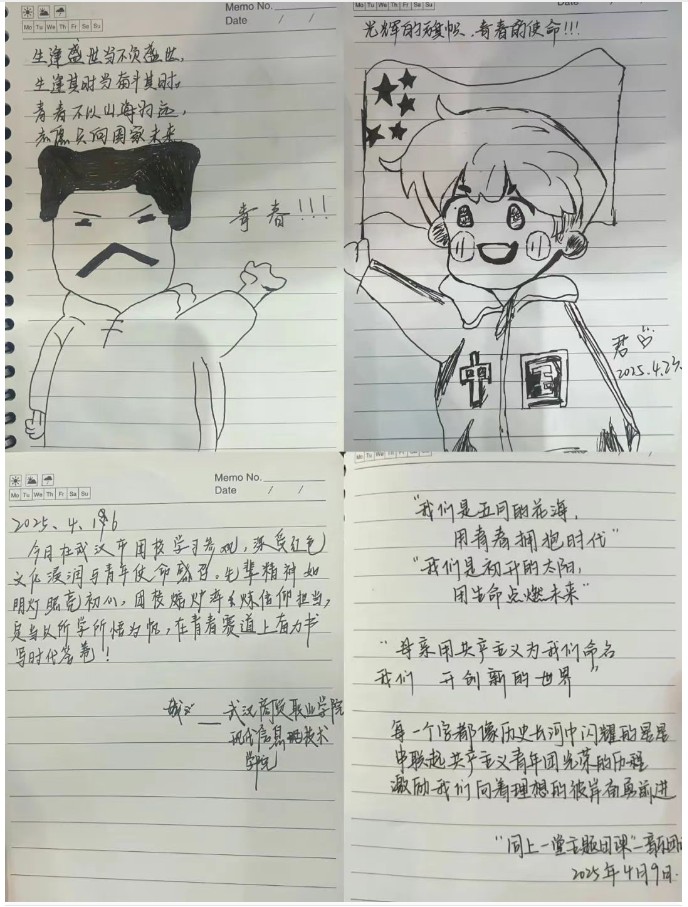 Memo No.
Mo Tu We Th Fr Sa Su
Date / /
生逢盛世当不负盛世,
生逢其时当奋斗其时,
青春不以山海为远,
亦愿只向国家未来
青春!!!
Mo Tu We Th Fr Sa Su
Date / /
光辉的旗帜,青春的使命!!!
君
2025.4.23.
Memo No.
Mo Tu We Th Fr Sa Su
Date / /
2025.4.
今日在武汉市团校学习参观,深受红色
文化浸润与青年使命感召。先辈精神如
明灯照亮初心,团校熔炉淬炼信仰担当,
定当以所学所悟为帆,在青春赛道上奋力书
写时代答卷!
武汉商贸职业学院
现代信息技术
学院
"我们是五月的花海,
用青春拥抱时代"
"我们是初升的太阳,
用生命点燃未来"
"母亲用共产主义为我们命名
我们 开创新的世界"
每一个字都像历史长河中闪耀的星星
串联起共产主义青年团光荣的历程
激励我们向着理想的彼岸奋勇前进
"同上一堂主题团课"
2025年4月9日.